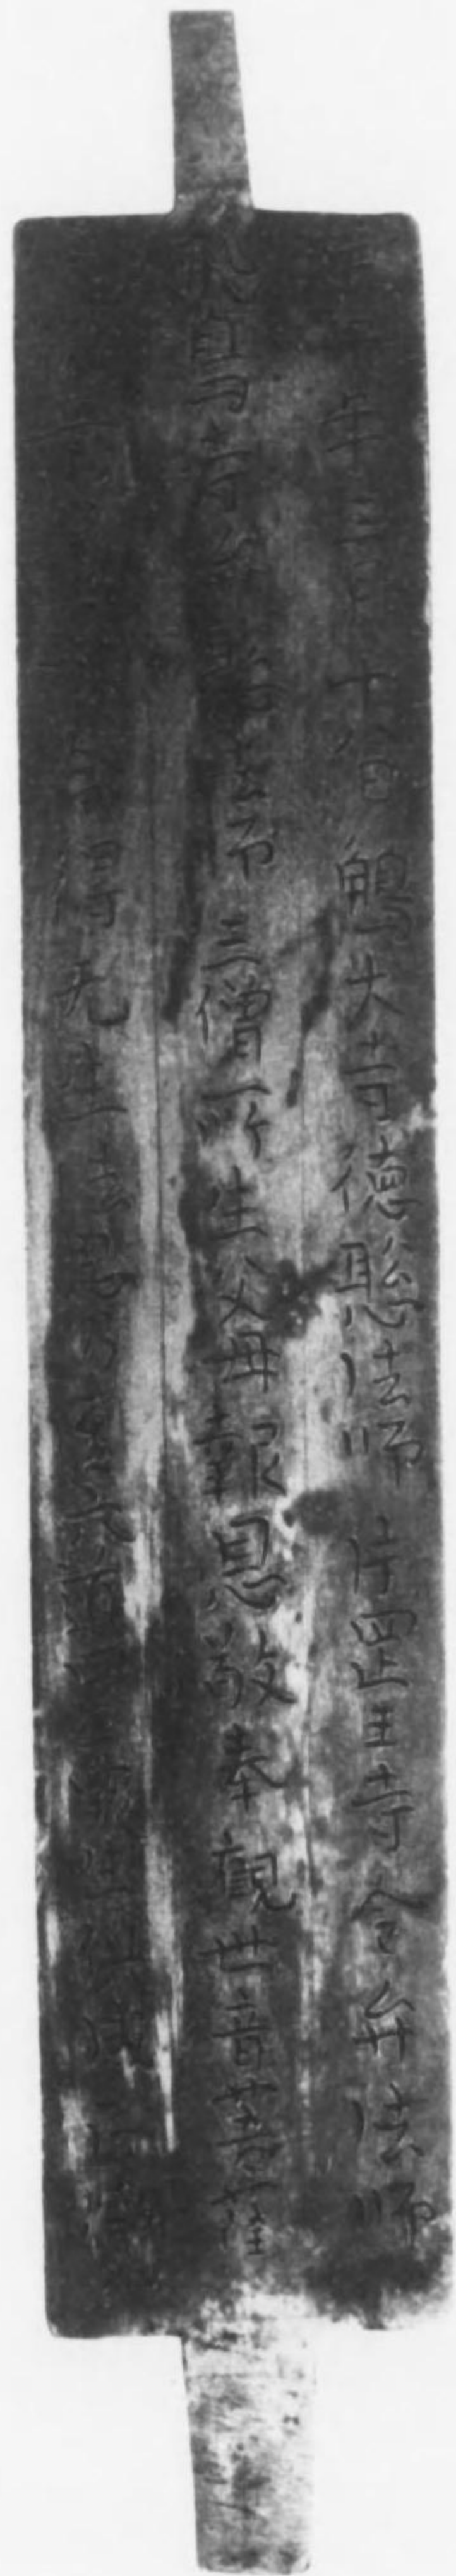 甲午年三月十八日鵤大寺德聡法師片罡王寺令弁法師
飛鳥寺弁聡法師三僧所生父母報恩敬奉觀世音菩薩
令得无生法忍乃至六道四生衆生俱成正覺